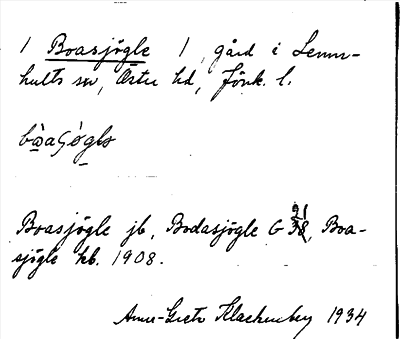 1 Boasjögle 1, gård i Lemn-
hults sn, Östra hd, Jönk. l.
Boasjögle jb, Bodasjögle G 21, Boa-
sjögle hb. 1908.
Anna-Greta Klackenberg 1934